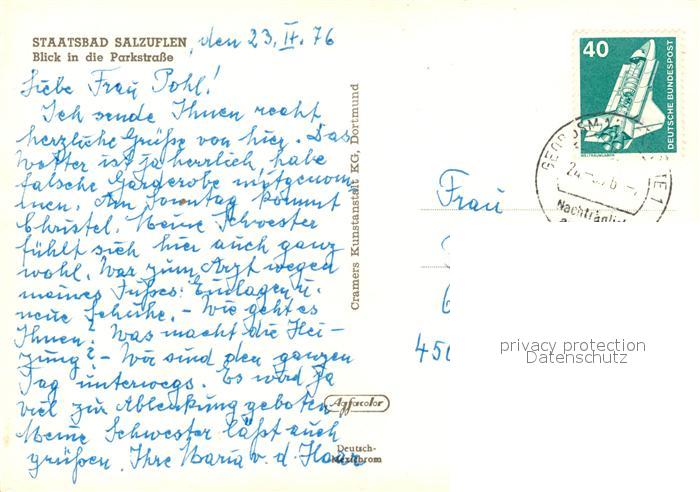 STAATSBAD SALZUFLEN, den 23. IX. 76
Blick in die Parkstraße
Liebe Frau Pohl!
Ich sende Ihnen recht
herzliche Grüße von hier. Das
Wetter ist ja herrlich, habe
falsche Garderobe mitgenom-
men. Am Sonntag kommt
Christel. Meine Schwester
fühlt sich hier auch ganz
wohl. War zum Arzt wegen
meines Fußes: Einlagen u.
neue Schuhe. - Wie geht es
Ihnen? Was macht die Hei-
zung? - Wir sind den ganzen
Tag unterwegs. Es wird ja
viel zur Ablenkung geboten.
Meine Schwester läßt auch
grüßen. Ihre Maria v. d. Haar
Cramers Kunstanstalt KG, Dortmund
Agfacolor
Deutsch-
40
DEUTSCHE BUNDESPOST
WELTRAUMLABOR
Nachträglich
Frau
45
privacy protection
Datenschutz